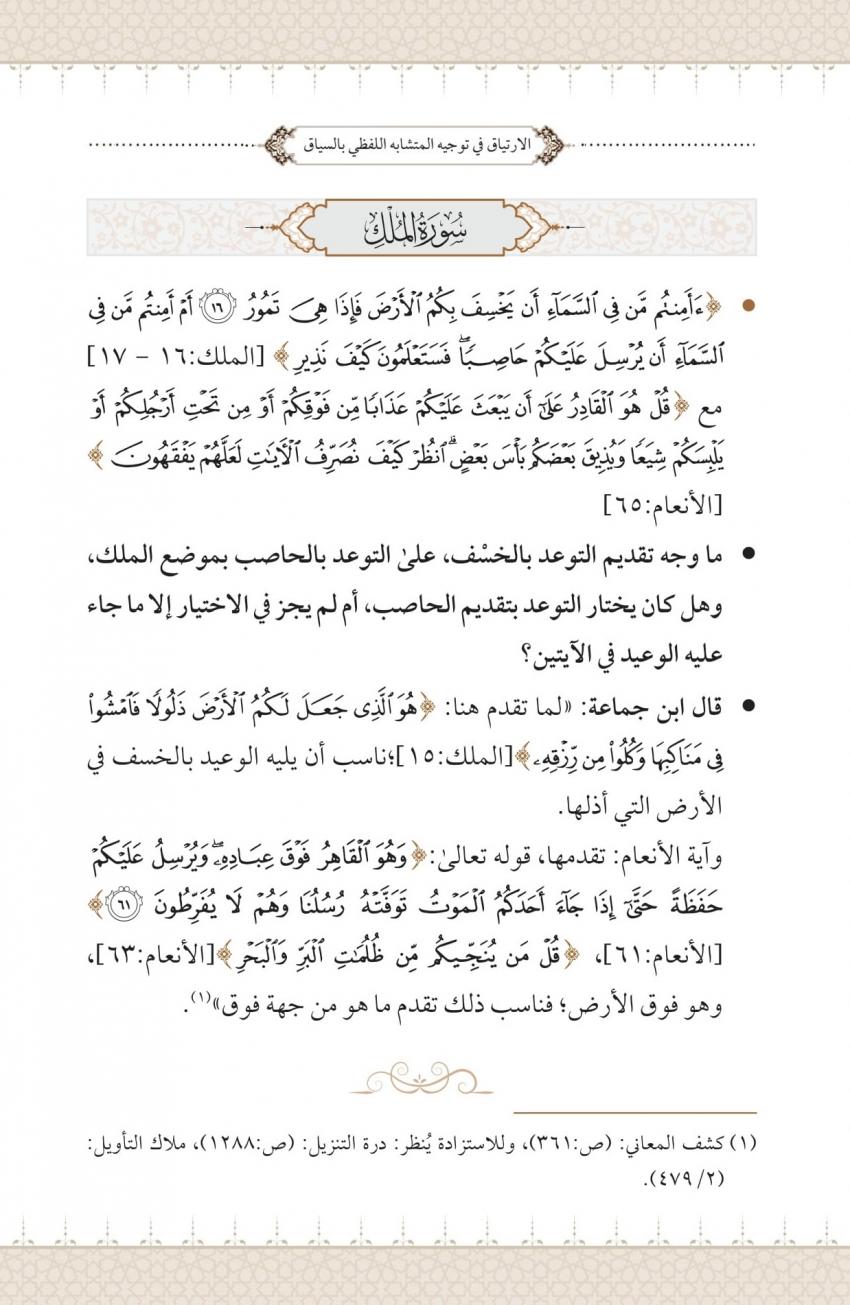 الارتياق في توجيه المتشابه اللفظي بالسياق
سُورَةُ المُلْكِ
• ﴿ءَأَمِنتُم مَّن فِي ٱلسَّمَآءِ أَن يَخْسِفَ بِكُمُ ٱلْأَرْضَ فَإِذَا هِيَ تَمُورُ ١٦ أَمْ أَمِنتُم مَّن فِي
ٱلسَّمَآءِ أَن يُرْسِلَ عَلَيْكُمْ حَاصِبًاۖ فَسَتَعْلَمُونَ كَيْفَ نَذِيرِ﴾ [الملك:١٦ – ١٧]
مع ﴿قُلْ هُوَ ٱلْقَادِرُ عَلَىٰٓ أَن يَبْعَثَ عَلَيْكُمْ عَذَابًا مِّن فَوْقِكُمْ أَوْ مِن تَحْتِ أَرْجُلِكُمْ أَوْ
يَلْبِسَكُمْ شِيَعًا وَيُذِيقَ بَعْضَكُم بَأْسَ بَعْضٍۗ ٱنظُرْ كَيْفَ نُصَرِّفُ ٱلْأٓيَٰتِ لَعَلَّهُمْ يَفْقَهُونَ﴾
[الأنعام:٦٥]
• ما وجه تقديم التوعد بالخسْف، علىٰ التوعد بالحاصب بموضع الملك،
وهل كان يختار التوعد بتقديم الحاصب، أم لم يجز في الاختيار إلا ما جاء
عليه الوعيد في الآيتين؟
• قال ابن جماعة: «لما تقدم هنا: ﴿هُوَ ٱلَّذِي جَعَلَ لَكُمُ ٱلْأَرْضَ ذَلُولًا فَٱمْشُوا۟
فِي مَنَاكِبِهَا وَكُلُوا۟ مِن رِّزْقِهِۦ﴾[الملك:١٥]؛ناسب أن يليه الوعيد بالخسف في
الأرض التي أذلها.
وآية الأنعام: تقدمها، قوله تعالىٰ:﴿وَهُوَ ٱلْقَاهِرُ فَوْقَ عِبَادِهِۦۖ وَيُرْسِلُ عَلَيْكُمْ
حَفَظَةً حَتَّىٰٓ إِذَا جَآءَ أَحَدَكُمُ ٱلْمَوْتُ تَوَفَّتْهُ رُسُلُنَا وَهُمْ لَا يُفَرِّطُونَ ٦١﴾
[الأنعام:٦١]، ﴿قُلْ مَن يُنَجِّيكُم مِّن ظُلُمَٰتِ ٱلْبَرِّ وَٱلْبَحْرِ﴾[الأنعام:٦٣]،
وهو فوق الأرض؛ فناسب ذلك تقدم ما هو من جهة فوق»(١).
(١) كشف المعاني: (ص:٣٦١)، وللاستزادة يُنظر: درة التنزيل: (ص:١٢٨٨)، ملاك التأويل:
(٢/ ٤٧٩).